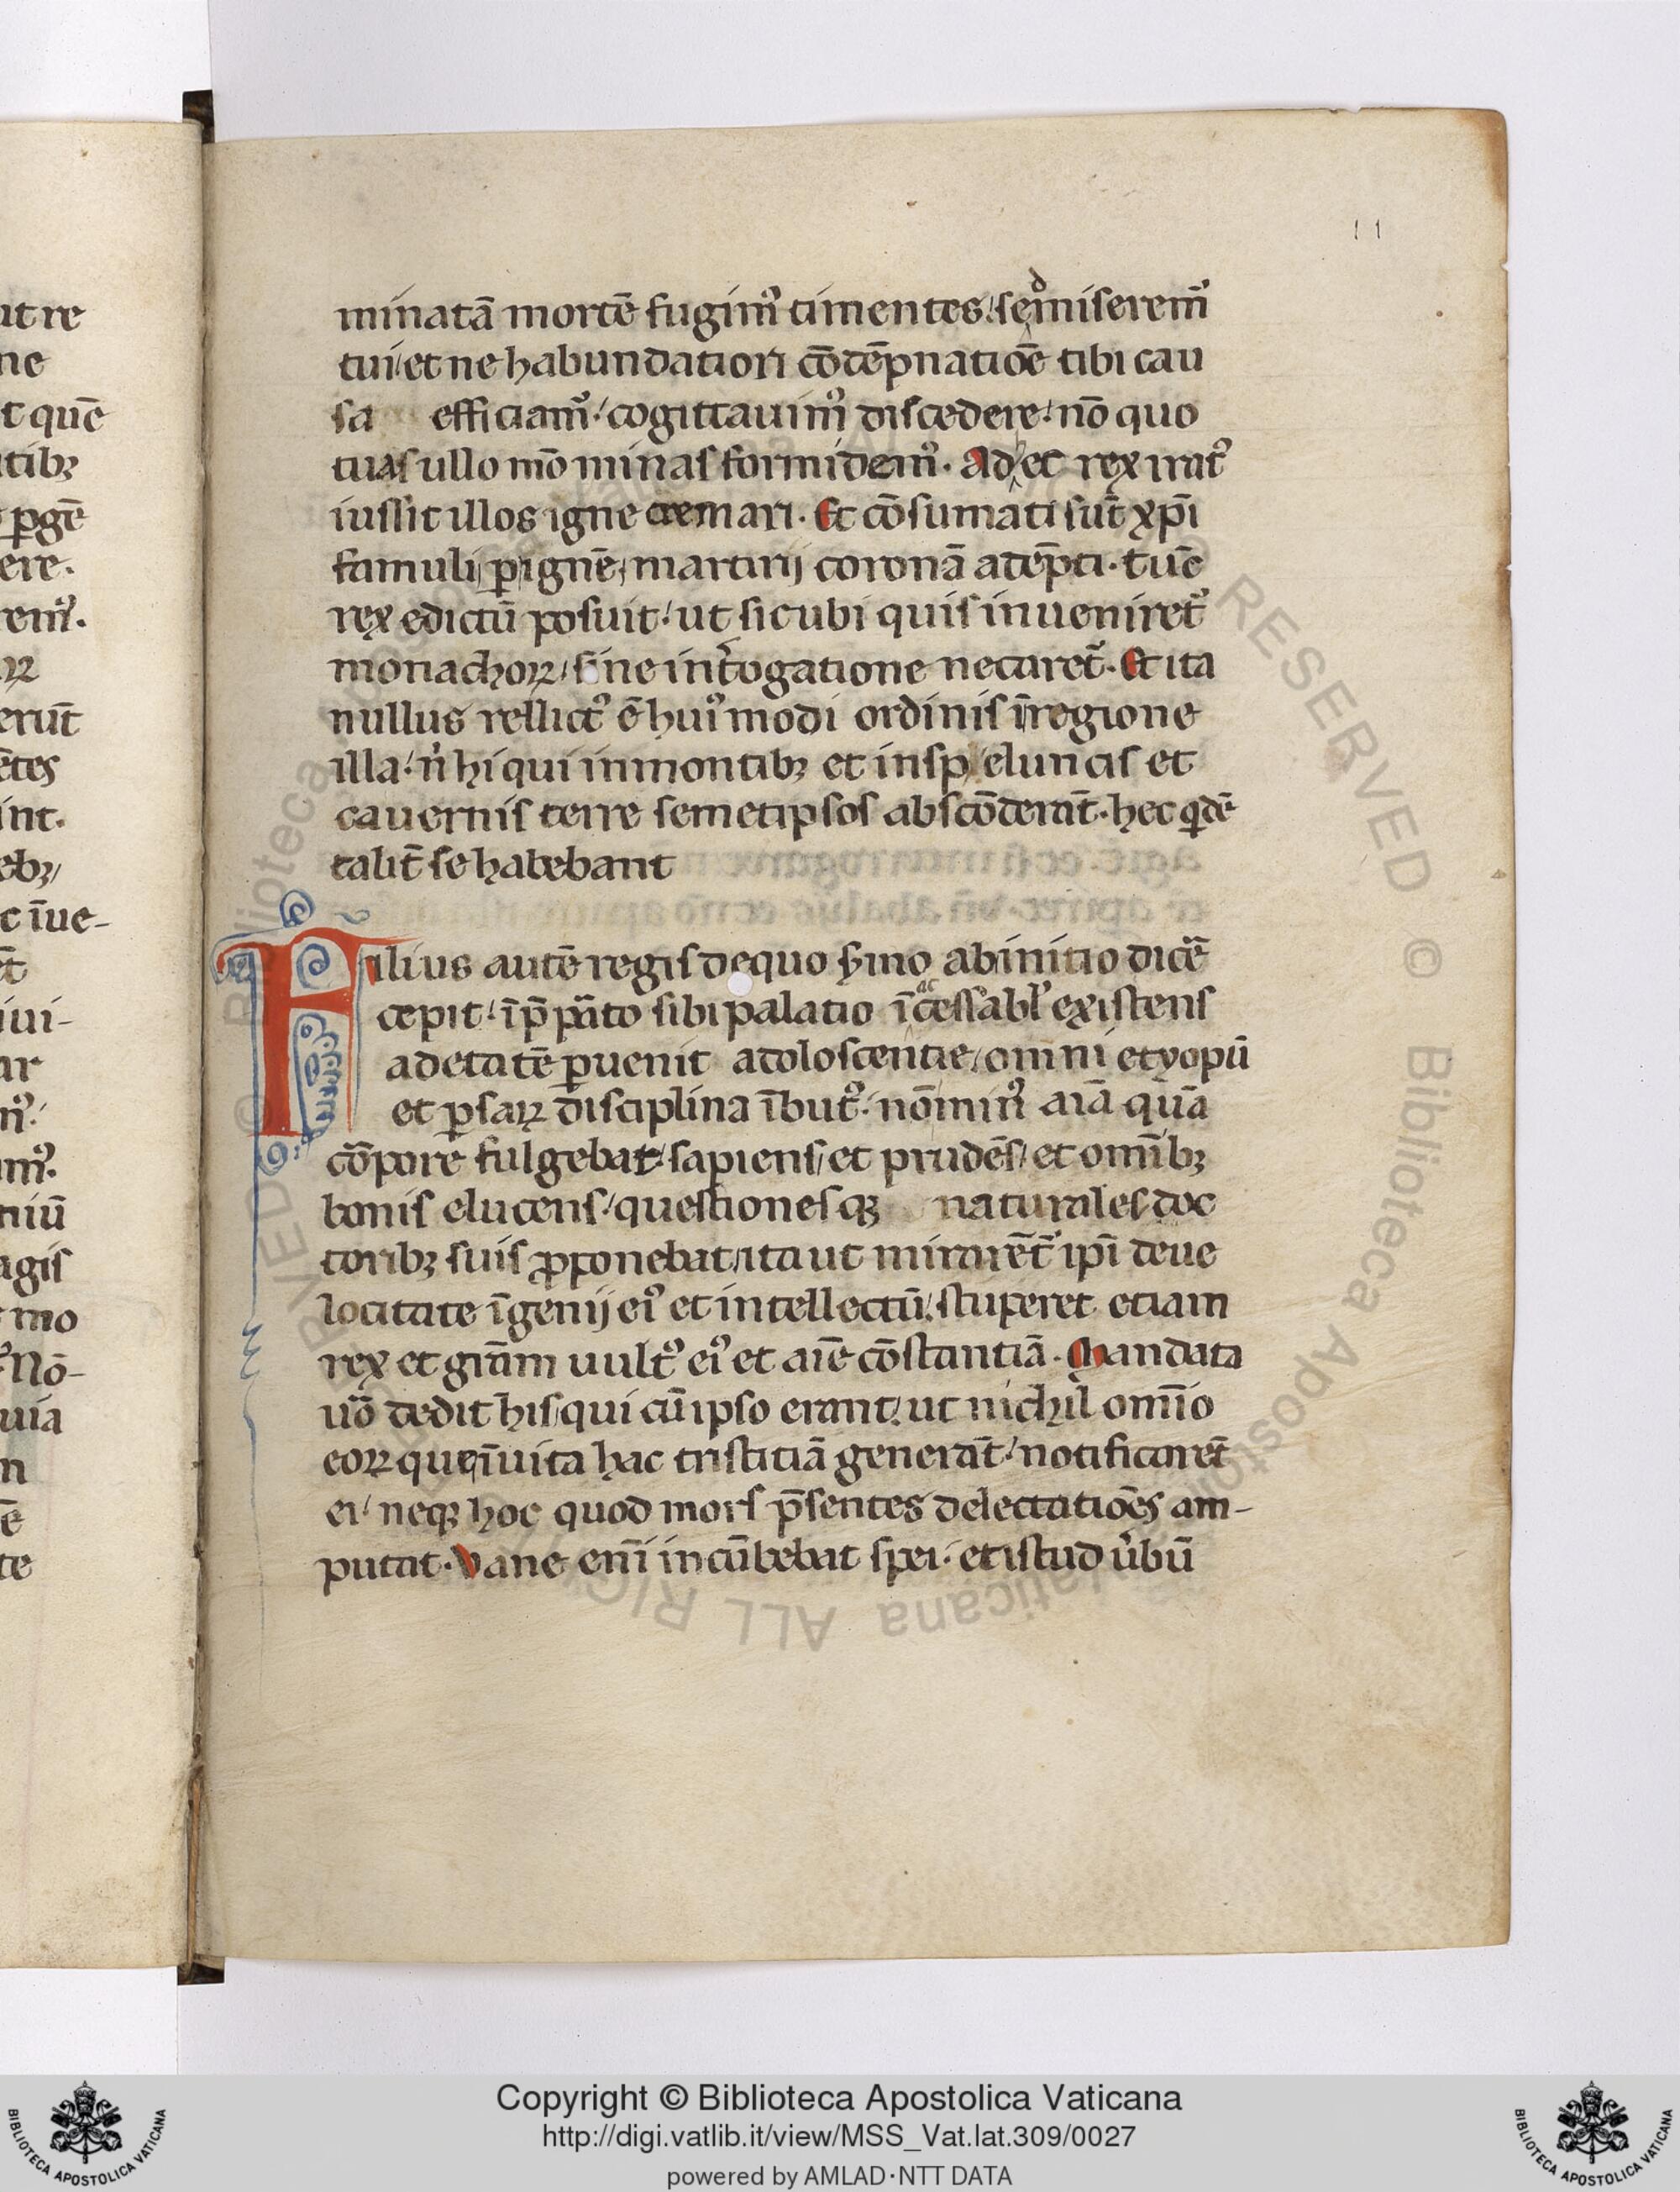 11
ut re
ne
t quē
tibꝫ
ꝑgē
ere.
remꝰ.
oꝝ
erūt
ētes
int.
ebꝫ/
c īue-
ēt
iui-
ar
mꝰ.
niū
agis
mo
Nō-
uia
n
ē
te
minatā mortē fugimꝰ timentes. sed miseremꝰ
tui et ne habundatiori cōtēpnatiōe tibi cau
sa efficiamꝰ. cogittauimꝰ discedere. nō quo
tuas ullo mō minas formidemꝰ. Ad ec rex iratꝰ
iussit illos igne cremari. Et cōsumati sūt xp̄i
famuli ꝑ ignē, martirij coronā adēpti. tūc
rex edictū posuit. ut sicubi quis inueniret᷑
monachoꝝ, sine int̄rogatione necaret᷑. Et ita
nullus rellictꝰ ē huiꝰmodi ordinis ī regione
illa. n̄ hi qui in montibꝫ et in speluncis et
cauernis terre semetipsos abscōderāt. hec qͥdē
talit̄ se habebant
Filius autē regis de quo s̄mo ab initio dic̄e
cepit. ī p̄parato sibi palatio īaccessabl' existens
ad etatē ꝑuenit adoloscentie, omni etyopū
et ꝑsaꝝ disciplina ībutꝰ. nō minꝰ aīa quā
cōpore fulgebat. sapiens, et prudēs, et om̄ibꝫ
bonis elucens. questionesqꝫ naturales doc
toribꝫ suis ꝓponebat, ita ut mirarēt᷑ ip̄i de ue
locitate īgenij eiꝰ et intellectū. stuperet etiam
rex et grām uultꝰ eiꝰ et aīe cōstantiā. Mandata
uo dedit his, qui cū ipso erant. ut nichil om̄io
eoꝝ que ī uita hac tristitiā generāt. notificarēt
ei. neqꝫ hoc quod mors p̄sentes delectatiōes am-
putat. Vane enī incūbebat spei. et istud ūbū
© Biblioteca Apostolica Vaticana ALL RIGHTS RESERVED
Copyright © Biblioteca Apostolica Vaticana
http://digi.vatlib.it/view/MSS_Vat.lat.309/0027
powered by AMLAD·NTT DATA
BIBLIOTECA APOSTOLICA VATICANA
BIBLIOTECA APOSTOLICA VATICANA